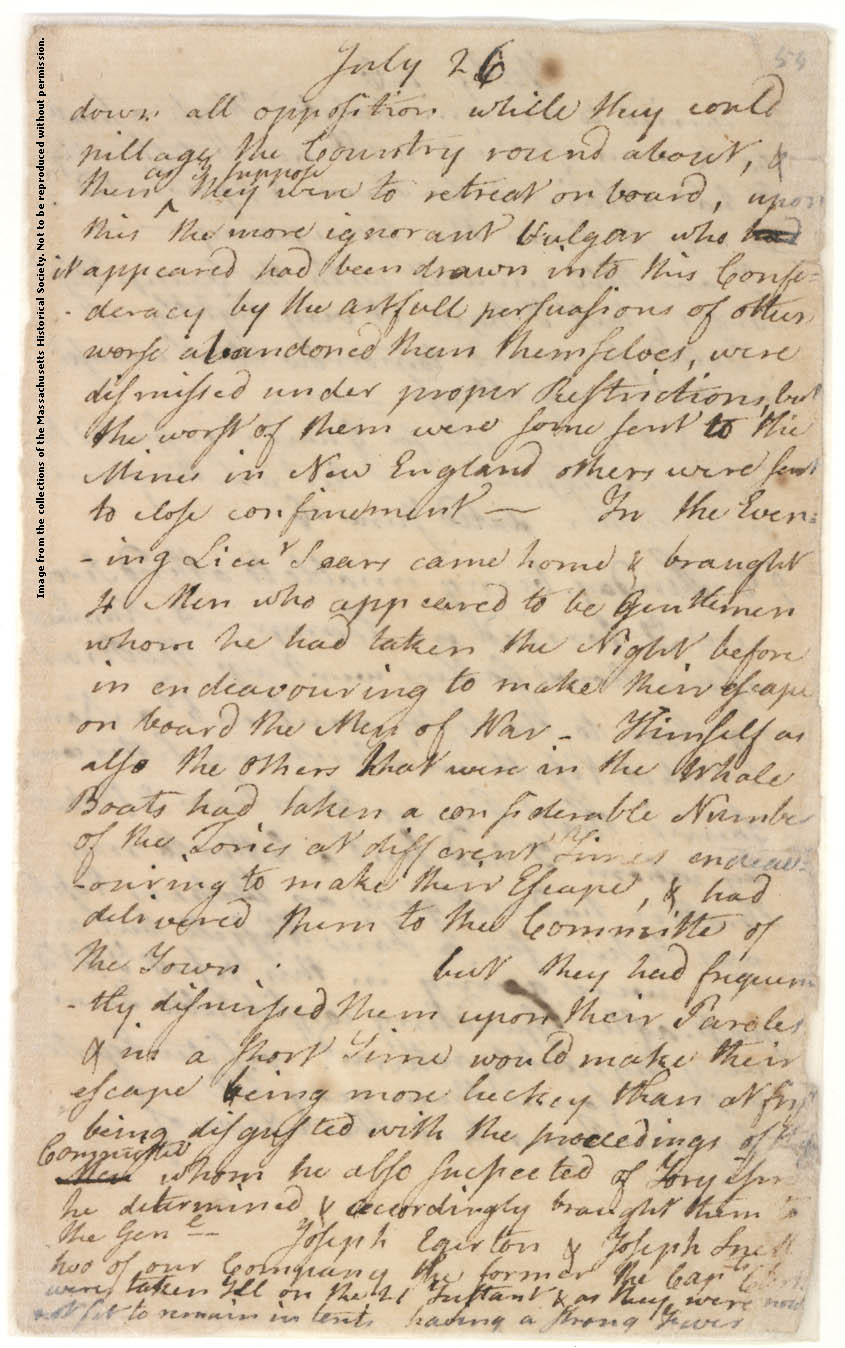 Image from the collections of the Massachusetts Historical Society. Not to be reproduced without permission.
July 26
55
down all opposition while they could
pillage the Country round about, &
as I suppose
then ^ they were to retreat on board, upon
this the more ignorant Vulgar who had
it appeared had been drawn into this Confe=
deracy by the artfull persuasions of others
worse abandoned than themselves, were
dismissed under proper Restrictions, but
the worst of them were some sent to the
Mines in New England others were sent
to close confinement — In the Even=
-ing Lieut Sears came home & braught
4 Men who appeared to be Gentlemen
whom he had taken the Night before
in endeavouring to make their escape
on board the Men of War - Himself as
also the others that were in the Whale
Boats had taken a considerable Number
of the Tories at different Times endeav-
-ouring to make their Escape, & had
delivered them to the Committe of
the Town but they had frequen
-tly dismissed them upon their Paroles
& in a short Time would make their
escape being more luckey than at first
being disgusted with the procedings of
Committee
Men whom he also suspected of Toryism
he determined & accordingly braught them to
the Genl — Joseph Egerton & Joseph Snell
two of our Company the former the Capts Clerk
were taken Ill on the 21 Instant & as they were
not fit to remain in tents having a strong Fever